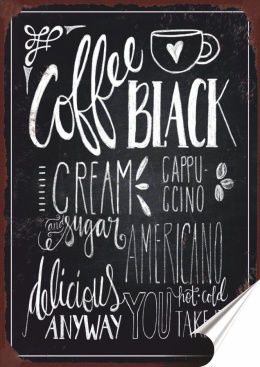 Coffee
BLACK
CREAM
and sugar
CAPPU-
CCINO
AMERICANO
delicious
ANYWAY
YOU
hot · cold
TAKE